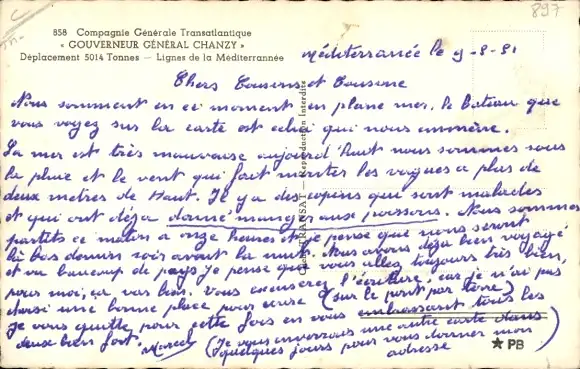 897
858 Compagnie Générale Transatlantique
« GOUVERNEUR GÉNÉRAL CHANZY »
Déplacement 5014 Tonnes — Lignes de la Méditerranée
méditerranée le 9-8-51
Chers Cousins et Cousine
Nous somment en ce moment en plane mer, le bateau que
vous voyez sur la carte est celui qui nous ammène.
La mer est très mauvaise aujourd'haut nous sommes sous
la pluie et le vent qui fait monter les vagues a plus de
deux metres de Haut. Il y a des copins qui sont malades
et qui ont déja donné manger aux poissons. Nous sommes
partits ce matin a onze heures et je pense que nous seront
là bas demain soir avant la nuit. Nous avons déja bien voyagé
et vu baucoup de pays je pense que vous allez toujours très bien,
pour moi, ca vas bien. Vous excuserez l'écriture, car je n'ai pas
choisi une bonne place pour écrire (sur le pont par terre)
je vous quitte pour cette fois en vous embrassant tous les
deux bien fort. Marcel (Je vous enverrous une autre carte dans
quelques jours pour vous donner mon
adresse)
TRANSAT — Reproduction Interdite
★ PB